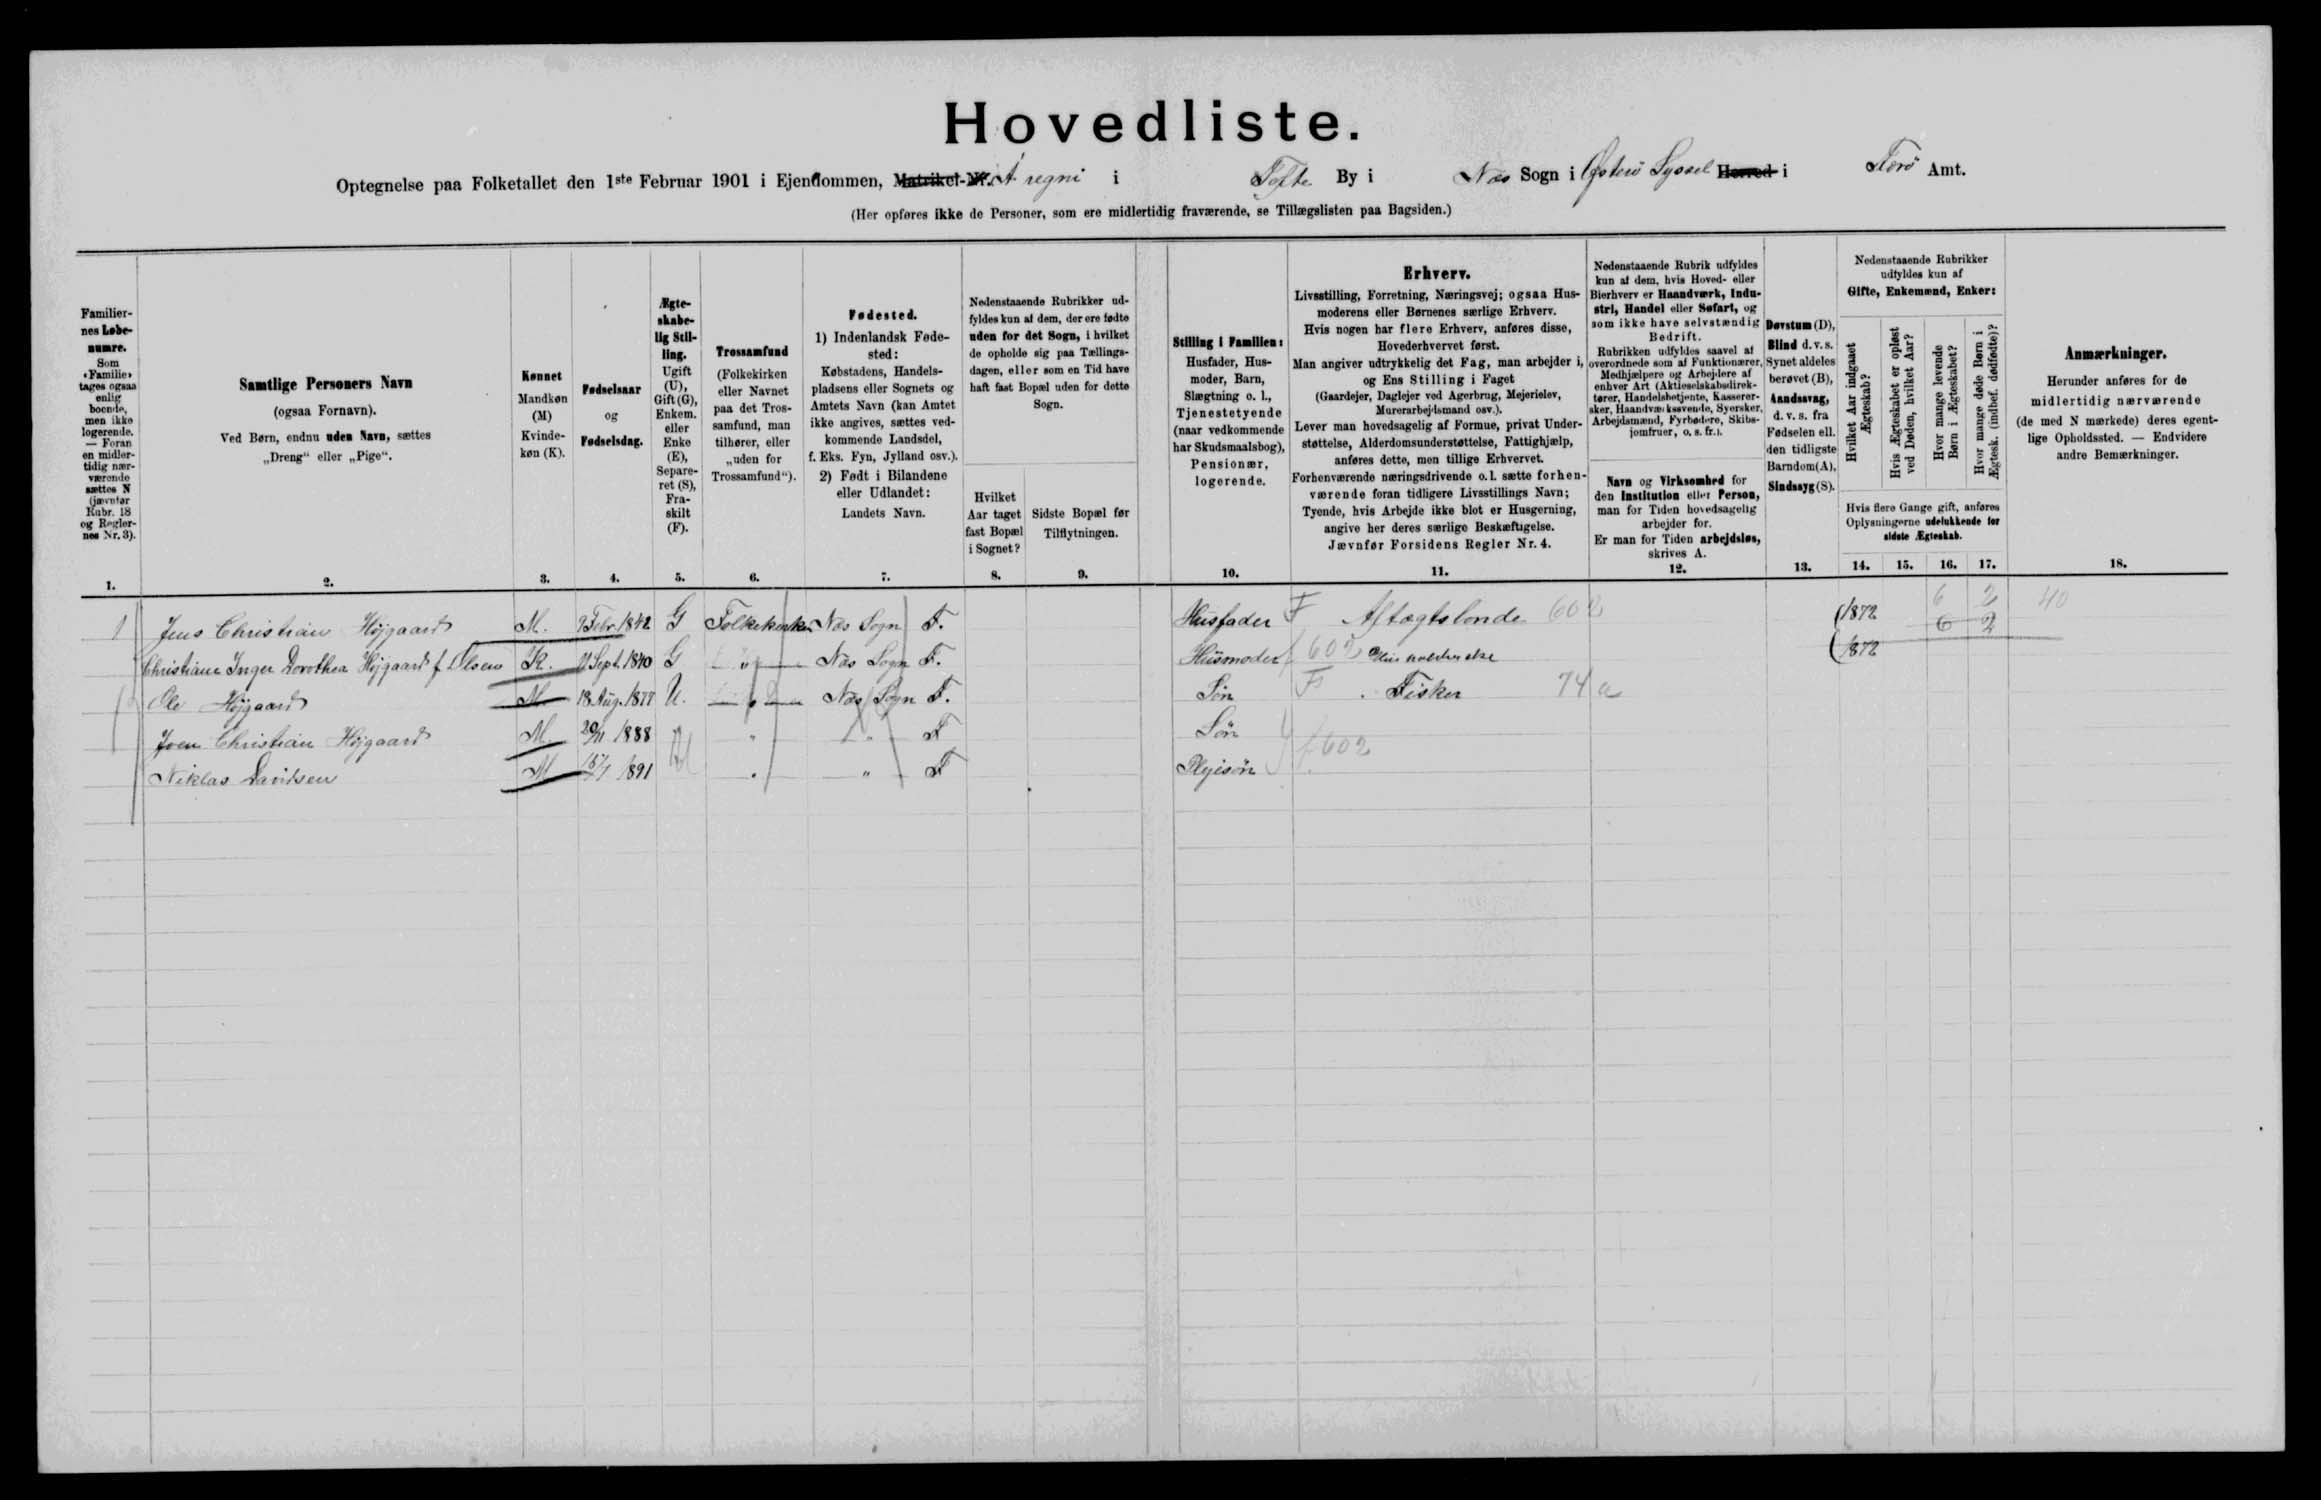 Hovedliste.
Optegnelse paa Folketallet den 1ste Februar 1901 i Ejendommen, Matrikel-Nr. Á regni i Tofte By i Næs Sogn i Østerö Syssel Herred i Færö Amt.
(Her opføres ikke de Personer, som ere midlertidig fraværende, se Tillægslisten paa Bagsiden.)
Familier-
nes Løbe-
numre.
Som
«Familie»
tages ogsaa
enlig
boende,
men ikke
logerende.
— Foran
en midler-
tidig nær-
værende
sættes N
(jævnfør
Rubr. 18
og Regler-
nes Nr. 3).
1.
Samtlige Personers Navn
(ogsaa Fornavn).
Ved Børn, endnu uden Navn, sættes
„Dreng“ eller „Pige“.
2.
Kønnet
Mandkøn
(M)
Kvinde-
køn (K).
3.
Fødselsaar
og
Fødselsdag.
4.
Ægte-
skabe-
lig Stil-
ling.
Ugift
(U),
Gift (G),
Enkem.
eller
Enke
(E),
Separe-
ret (S),
Fra-
skilt
(F).
5.
Trossamfund
(Folkekirken
eller Navnet
paa det Tros-
samfund, man
tilhører, eller
„uden for
Trossamfund“).
6.
Fødested.
1) Indenlandsk Føde-
sted:
Købstadens, Handels-
pladsens eller Sognets og
Amtets Navn (kan Amtet
ikke angives, sættes ved-
kommende Landsdel,
f. Eks. Fyn, Jylland osv.).
2) Født i Bilandene
eller Udlandet:
Landets Navn.
7.
Nedenstaaende Rubrikker ud-
fyldes kun af dem, der ere fødte
uden for det Sogn, i hvilket
de opholde sig paa Tællings-
dagen, eller som en Tid have
haft fast Bopæl uden for dette
Sogn.
Hvilket
Aar taget
fast Bopæl
i Sognet?
8.
Sidste Bopæl før
Tilflytningen.
9.
Stilling i Familien:
Husfader, Hus-
moder, Barn,
Slægtning o. l.,
Tjenestetyende
(naar vedkommende
har Skudsmaalsbog),
Pensionær,
logerende.
10.
Erhverv.
Livsstilling, Forretning, Næringsvej; ogsaa Hus-
moderens eller Børnenes særlige Erhverv.
Hvis nogen har flere Erhverv, anføres disse,
Hovederhvervet først.
Man angiver udtrykkelig det Fag, man arbejder i,
og Ens Stilling i Faget
(Gaardejer, Daglejer ved Agerbrug, Mejerielev,
Murerarbejdsmand osv.).
Lever man hovedsagelig af Formue, privat Under-
støttelse, Alderdomsunderstøttelse, Fattighjælp,
anføres dette, men tillige Erhvervet.
Forhenværende næringsdrivende o. l. sætte forhen-
værende foran tidligere Livsstillings Navn;
Tyende, hvis Arbejde ikke blot er Husgerning,
angive her deres særlige Beskæftigelse.
Jævnfør Forsidens Regler Nr. 4.
11.
Nedenstaaende Rubrik udfyldes
kun af dem, hvis Hoved- eller
Bierhverv er Haandværk, Indu-
stri, Handel eller Søfart, og
som ikke have selvstændig
Bedrift.
Rubrikken udfyldes saavel af
overordnede som af Funktionærer,
Medhjælpere og Arbejdere af
enhver Art (Aktieselskabsdirek-
tører, Handelsbetjente, Kasserer-
sker, Haandværkssvende, Syersker,
Arbejdsmænd, Fyrbødere, Skibs-
jomfruer, o. s. fr.).
Navn og Virksomhed for
den Institution eller Person,
man for Tiden hovedsagelig
arbejder for.
Er man for Tiden arbejdsløs,
skrives A.
12.
Døvstum (D),
Blind d. v. s.
Synet aldeles
berøvet (B),
Aandssvag,
d. v. s. fra
Fødselen ell.
den tidligste
Barndom (A),
Sindssyg (S).
13.
Nedenstaaende Rubrikker
udfyldes kun af
Gifte, Enkemænd, Enker:
Hvilket Aar indgaaet
Ægteskab?
Hvis Ægteskabet er opløst
ved Døden, hvilket Aar?
Hvor mange levende
Børn i Ægteskabet?
Hvor mange døde Børn i
Ægtesk. (indbef. dødfødte)?
Hvis flere Gange gift, anføres
Oplysningerne udelukkende for
sidste Ægteskab.
14. 15. 16. 17.
Anmærkninger.
Herunder anføres for de
midlertidig nærværende
(de med N mærkede) deres egent-
lige Opholdssted. — Endvidere
andre Bemærkninger.
18.
6 2 40
1 Jens Christian Højgaard M. 9 Febr. 1842 G Folkekirken Næs Sogn F. Husfader F Aftægtsbonde 602 1872 6 2
Christiane Inger Dorothea Højgaard f. Olsen K. 21 Sept. 1840 G " Næs Sogn F. Husmoder f 602 1872
Ole Højgaard M 18 Aug. 1877 U. " Næs Sogn F. Søn F Fisker 74 a
Joen Christian Højgaard M 20/11 1888 " " F Søn
f 602
Niklas Davidsen M 15/1 1891 U " " F Plejesön